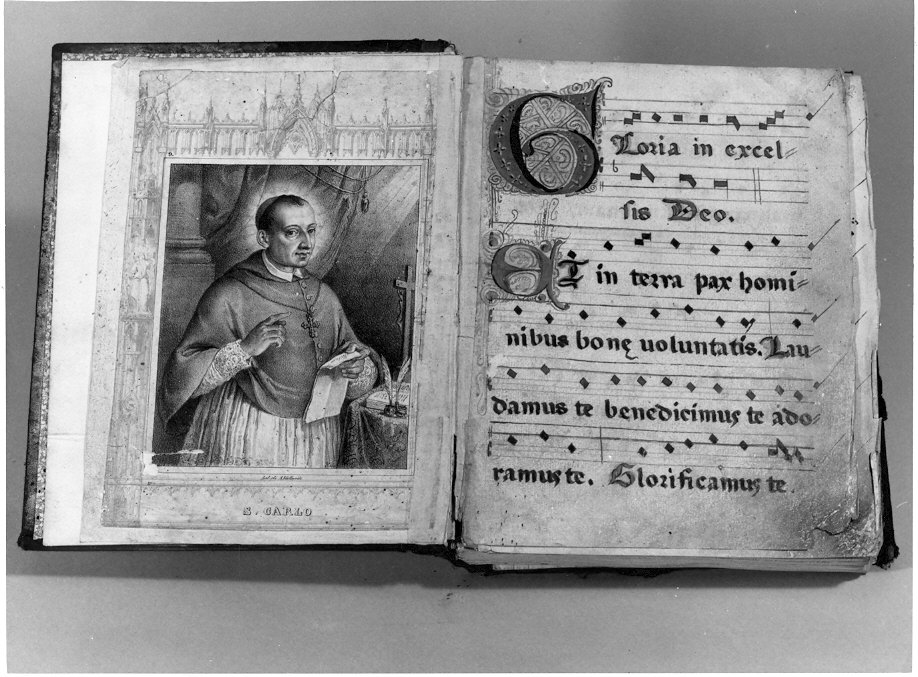 S. CARLO
Gloria in excel=
sis Deo.
Et in terra pax homi=
nibus bonę uoluntatis. Lau=
damus te benedicimus te ado=
ramus te. Glorificamus te.